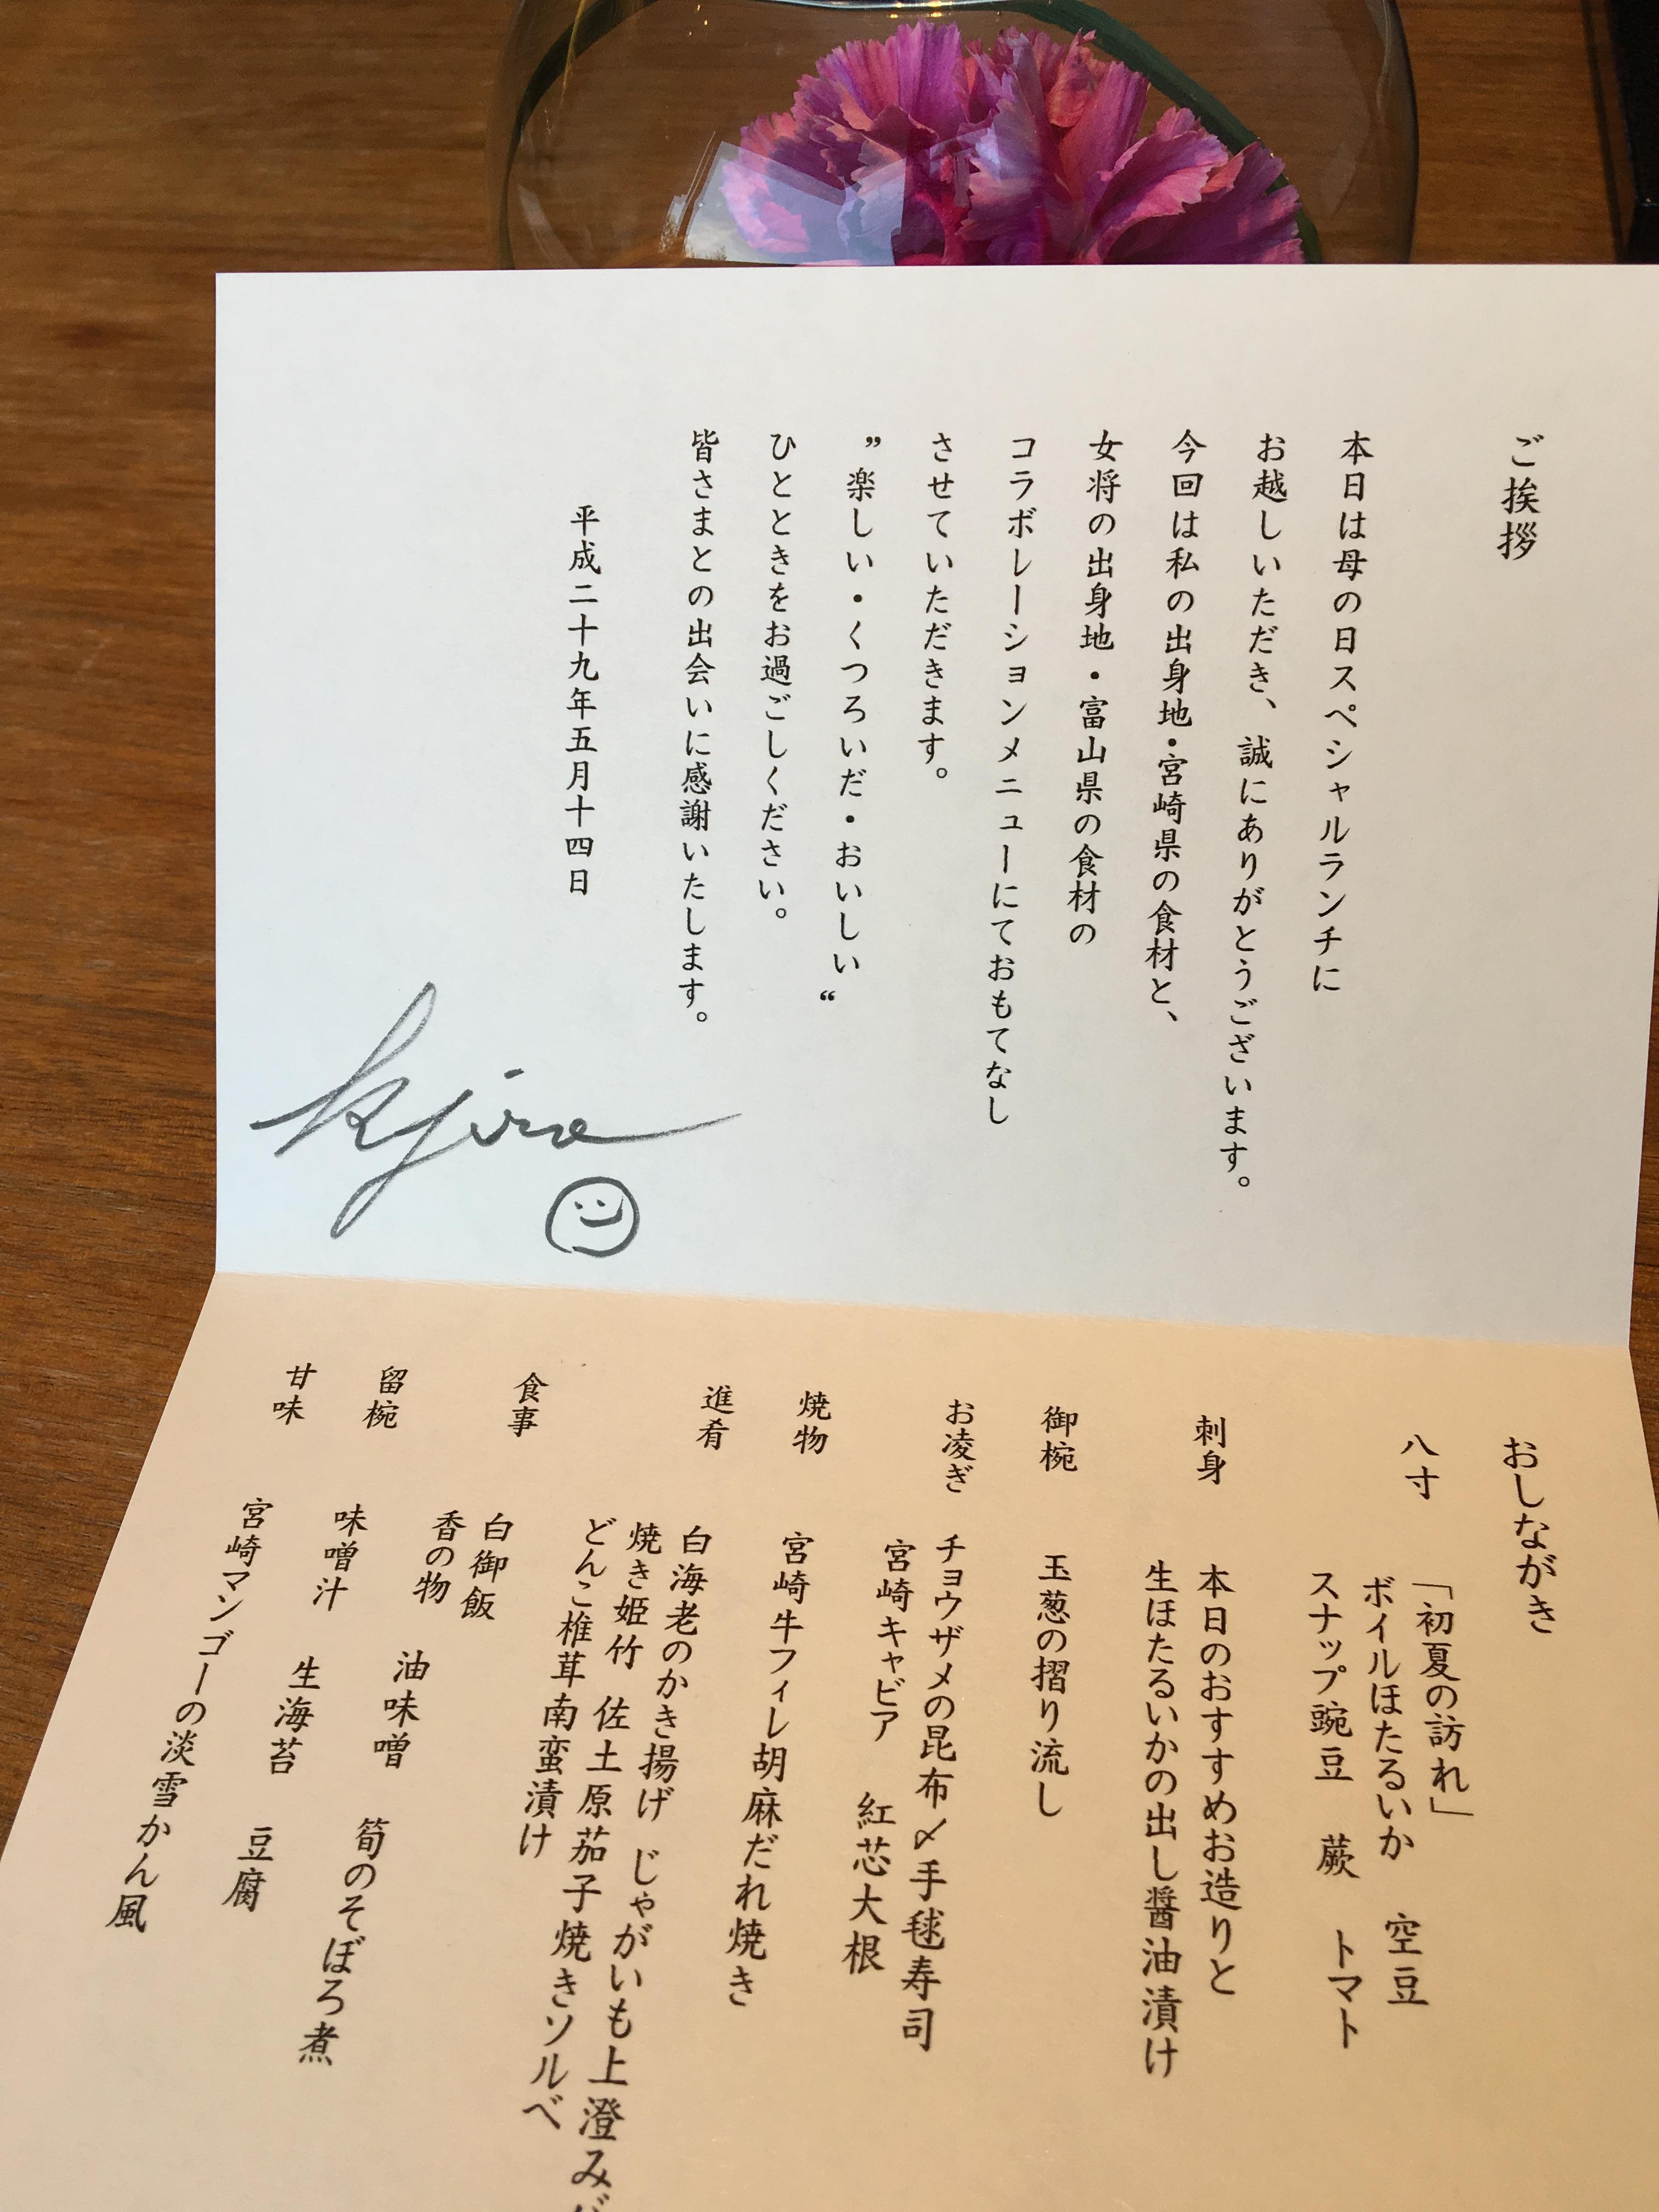 ご挨拶
本日は母の日スペシャルランチに
お越しいただき、誠にありがとうございます。
今回は私の出身地・宮崎県の食材と、
女将の出身地・富山県の食材の
コラボレーションメニューにておもてなし
させていただきます。
”楽しい・くつろいだ・おいしい“
ひとときをお過ごしください。
皆さまとの出会いに感謝いたします。
平成二十九年五月十四日
おしながき
八寸 「初夏の訪れ」
ボイルほたるいか 空豆
スナップ豌豆 蕨 トマト
刺身 本日のおすすめお造りと
生ほたるいかの出し醤油漬け
御椀 玉葱の摺り流し
お凌ぎ チョウザメの昆布〆手毬寿司
宮崎キャビア 紅芯大根
焼物 宮崎牛フィレ胡麻だれ焼き
進肴 白海老のかき揚げ じゃがいも上澄み
焼き姫竹 佐土原茄子焼きソルベ
どんこ椎茸南蛮漬け
食事 白御飯
香の物 油味噌 筍のそぼろ煮
留椀 味噌汁 生海苔 豆腐
甘味 宮崎マンゴーの淡雪かん風